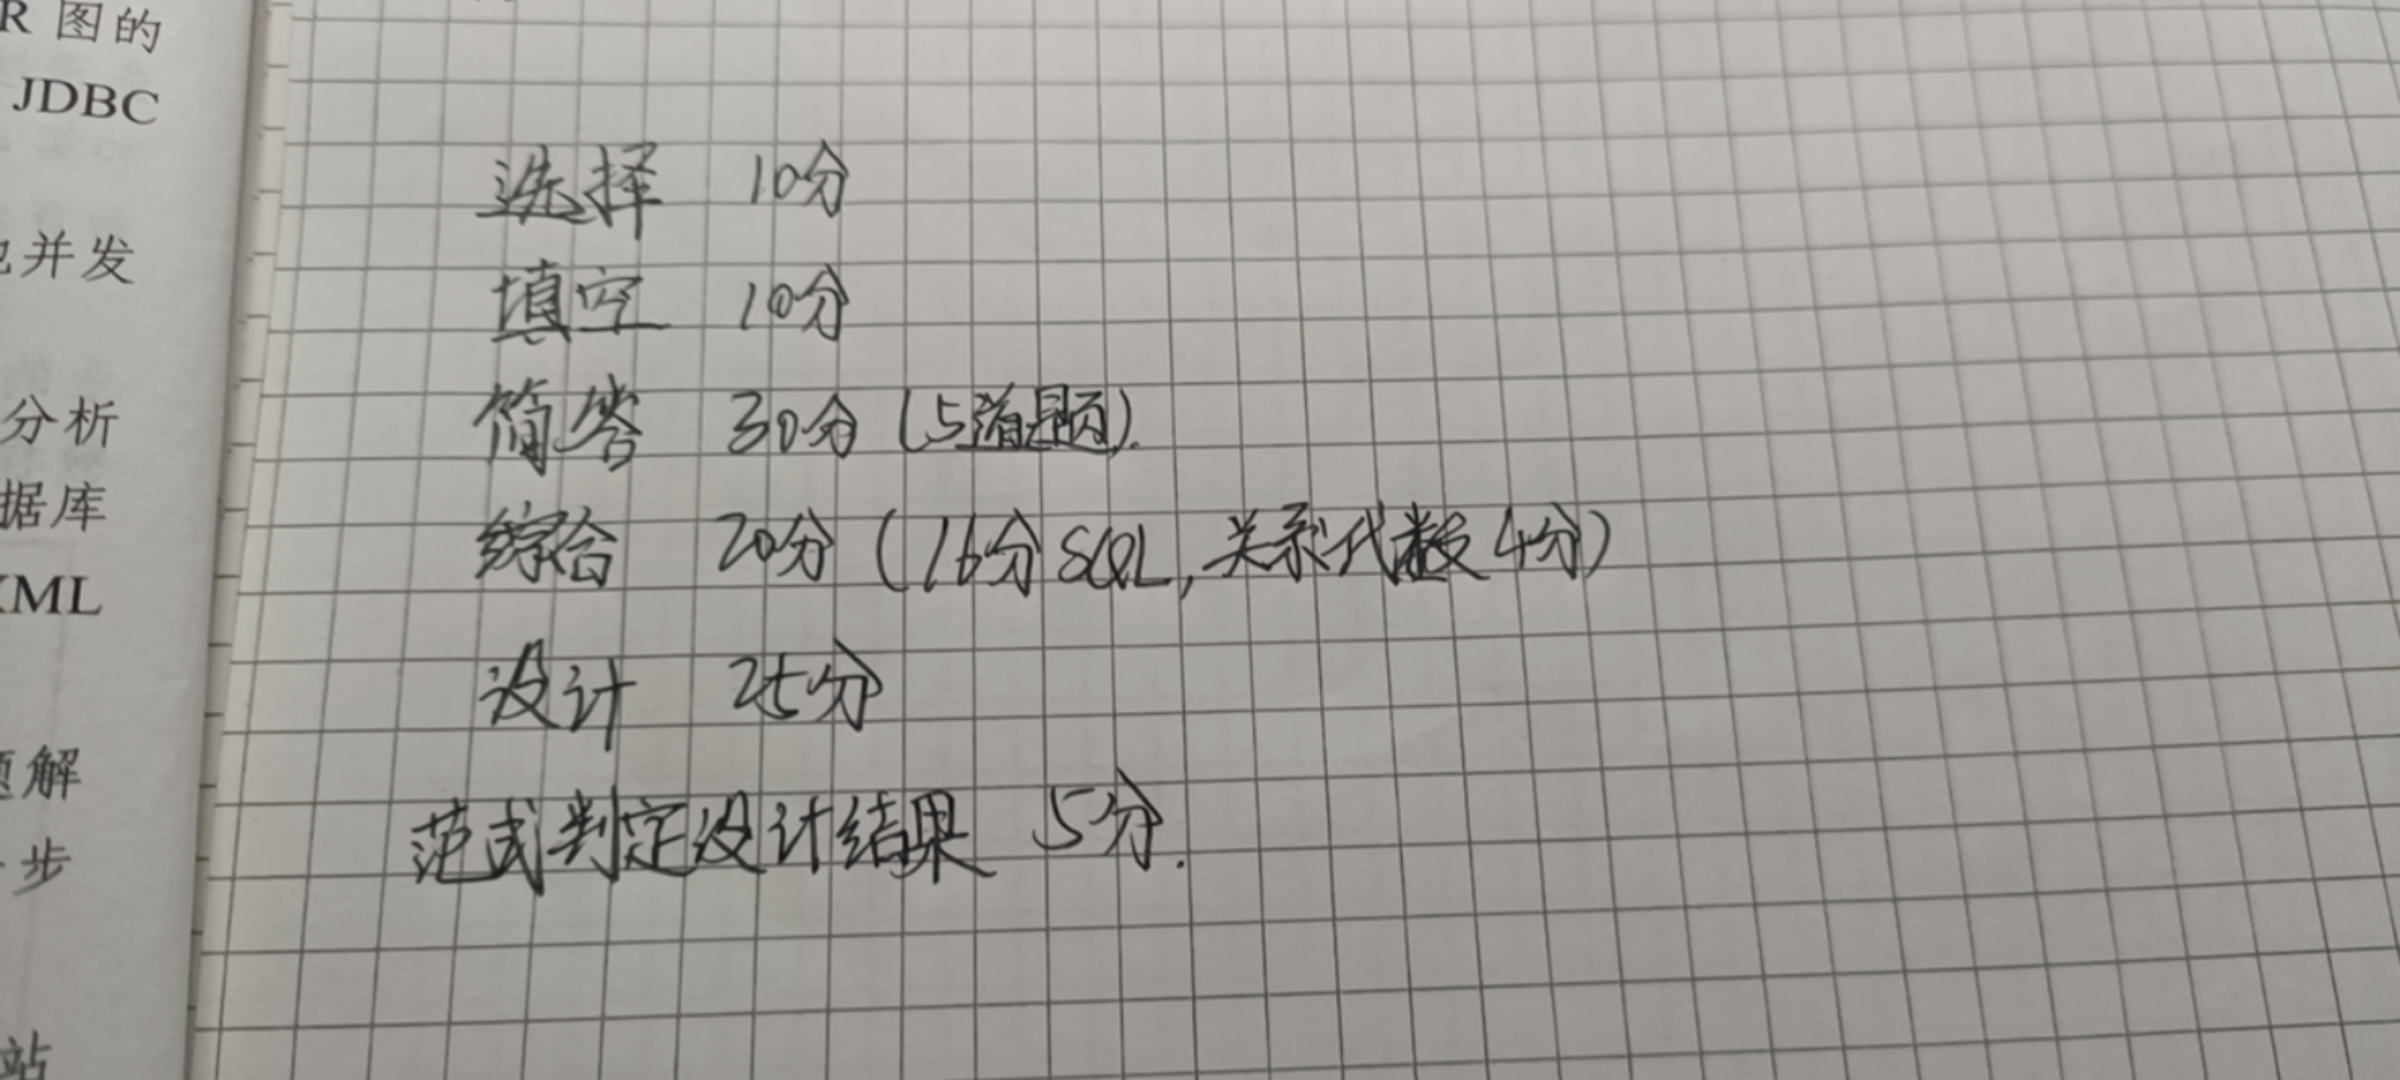 R 图的
JDBC
并发
分析
据库
XML
解
步
站
选择 10分
填空 10分
简答 30分 (5道题).
综合 20分 (16分 SQL, 关系代数 4分)
设计 25分
范式判定设计结果 5分.